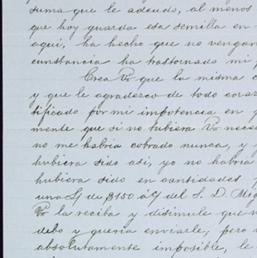 suma que le adeudo, al menos
que hoy guarda esa semilla en
aqui, ha hecho que no vengan
cunstancia ha trastornado mi p
Crea Vo que la misma c
y que le agradezco de todo coraz
tificado por mi impotencia en p
mente que si no tubiera Vo nece
no me habria cobrado nunca, y
hubiera sido asi, yo no habria
hubiera sido en cantidades p
una L/ de $150 a/c del S. D. Mig
Vo la reciba y disimule que n
debo y queria enviarle, pero a
absolutamente imposible, le